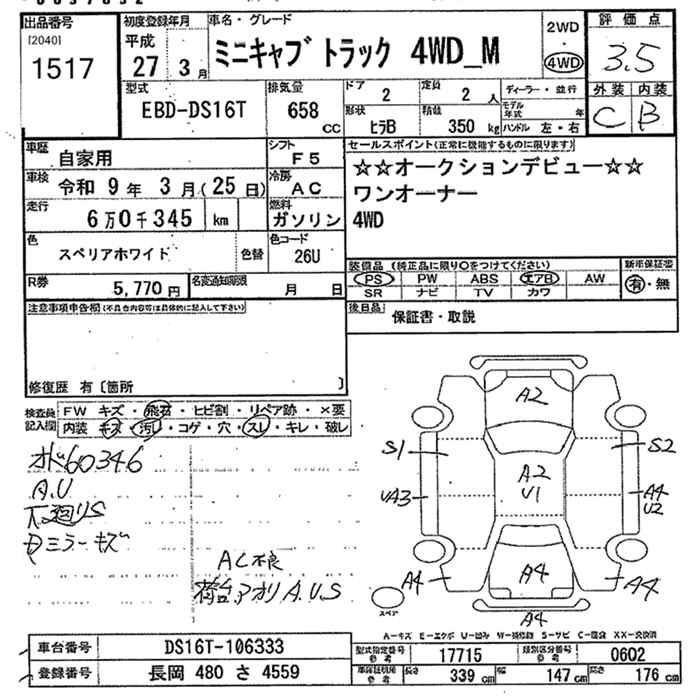 出品番号
[2040]
1517
初度登録年月
平成
27年 3月
車名・グレード
ミニキャブ トラック 4WD_M
2WD
・
4WD
評価点
3.5
外装 内装
C B
型式
EBD-DS16T
排気量
658 CC
ドア
2
定員
2 人
形状
ヒラB
積載
350 kg
ディーラー・並行
モデル年式 年
ハンドル 左・右
車歴
自家用
シフト
F5
車検
令和 9年 3月(25日)
冷房
AC
走行
6万0千345 km
燃料
ガソリン
色
スペリアホワイト
色替
色コード
26U
R券
5,770円
名変通知期限
月 日
セールスポイント(正常に機能するものに限ります)
☆☆オークションデビュー☆☆
ワンオーナー
4WD
装備品 (純正品に限り○をつけてください)
PS PW ABS エアB AW
SR ナビ TV カワ
新車保証書
有・無
後日品
保証書・取説
注意事項申告欄(不具合内容等は具体的に記入して下さい)
修復歴 有〔箇所 〕
検査員記入欄
FW キズ・飛石・ヒビ割・リペア跡・×要
内装 キズ・汚レ・コゲ・穴・スレ・キレ・破レ
オド60346
A.U
下廻りS
Dミラーキズ
AC不良
荷台アオリA.U.S
A2
S1
S2
A2
U1
UA3
A4
U2
A4
A4
A4
A4
スペア
A-キズ E-エクボ U-凹み W-補修跡 S-サビ C-腐食 XX-交換済
車台番号
DS16T-106333
登録番号
長岡 480 さ 4559
型式指定番号 参考
17715
類別区分番号 参考
0602
車庫証明用 参考
長さ 339 cm
幅 147 cm
高さ 176 cm